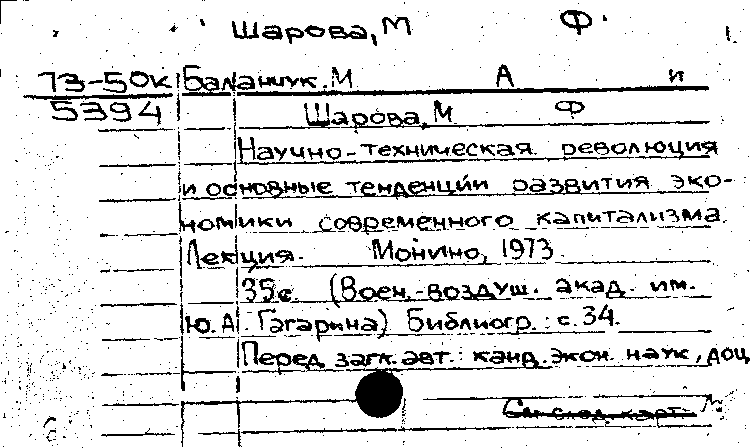 Шарова, М Ф.
73-50к Баланчук. М А и
5394 Шарова, М Ф
Научно-техническая революция
и основные тенденции развития эко-
номики современного капитализма.
Лекция. Монино, 1973.
35с. (Воен.-воздуш. акад. им.
Ю.А. Гагарина) Библиогр.: с. 34.
Перед загл. авт.: канд. экон. наук, доц
См. след. карт.